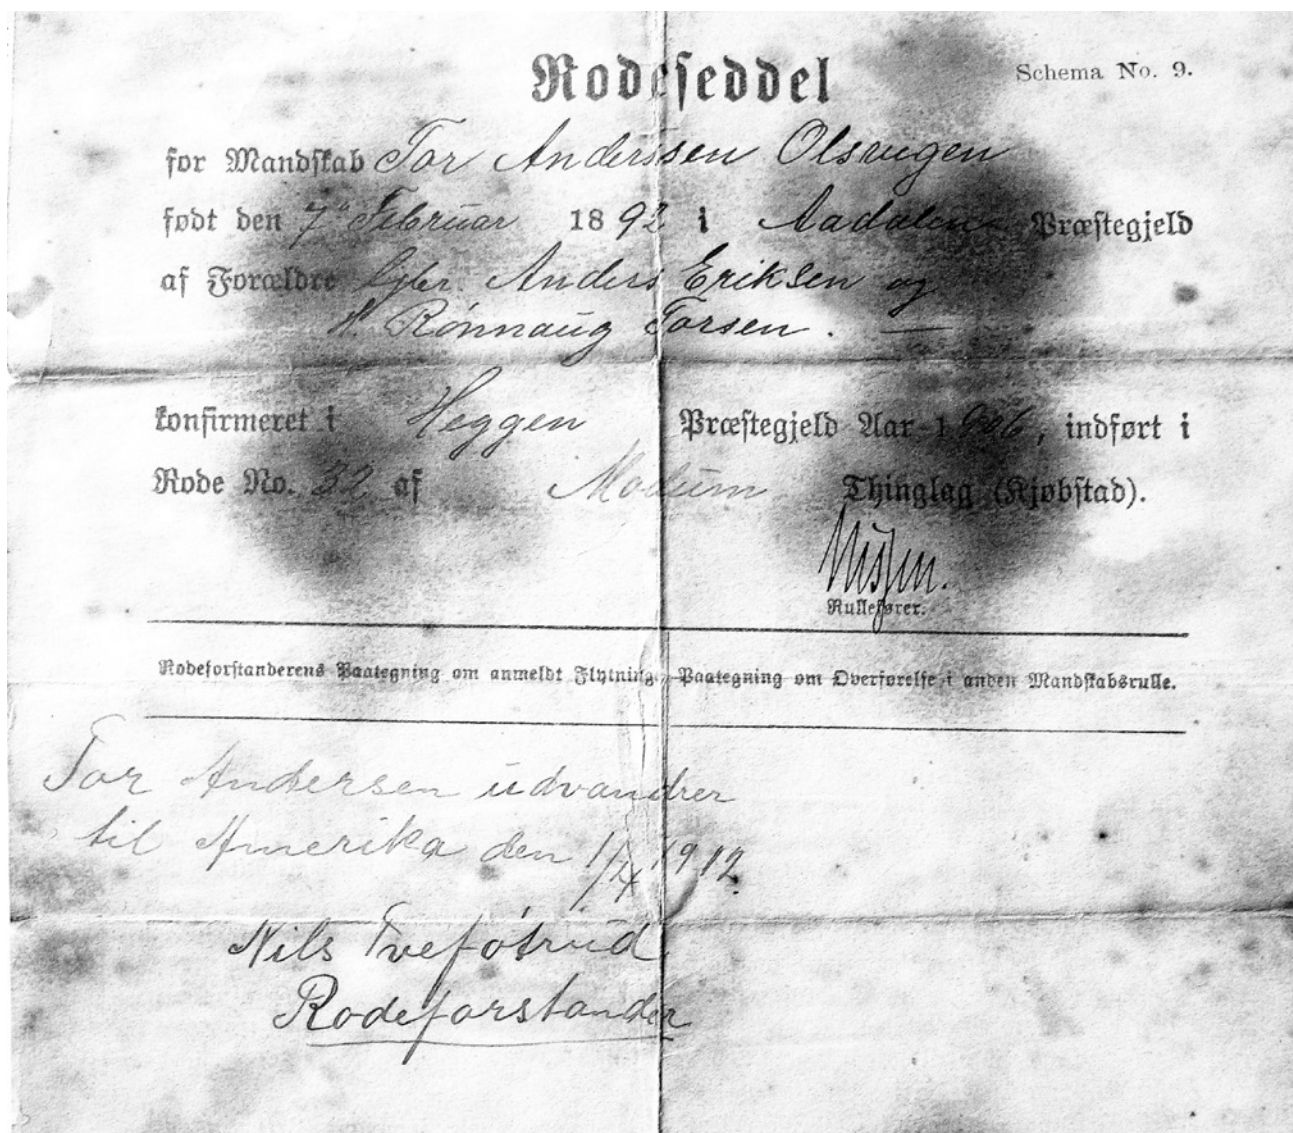 Rodeseddel
Schema No. 9.
for Mandskab Tor Anderssen Olsvigen
født den 7de Februar 1892 i Aadalen Præstegjeld
af Forældre Gbr. Anders Eriksen og
H. Rønnaug Torsen. —
konfirmeret i Heggen Præstegjeld Aar 1906, indført i
Rode No. 32 af Modum Thinglag (Kjøbstad).
Rullefører.
Rodeforstanderens Paategning om anmeldt Flytning. Paategning om Overførelse i anden Mandskabsrulle.
Tor Andersen udvandrer
til Amerika den 1/4 1912.
Nils Tveføtrud
Rodeforstander